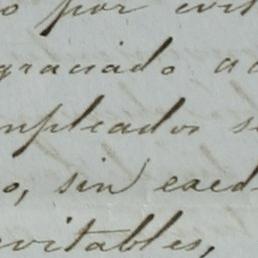 o por evit
graciado ac
mpleados s
o, sin exced
evitables,